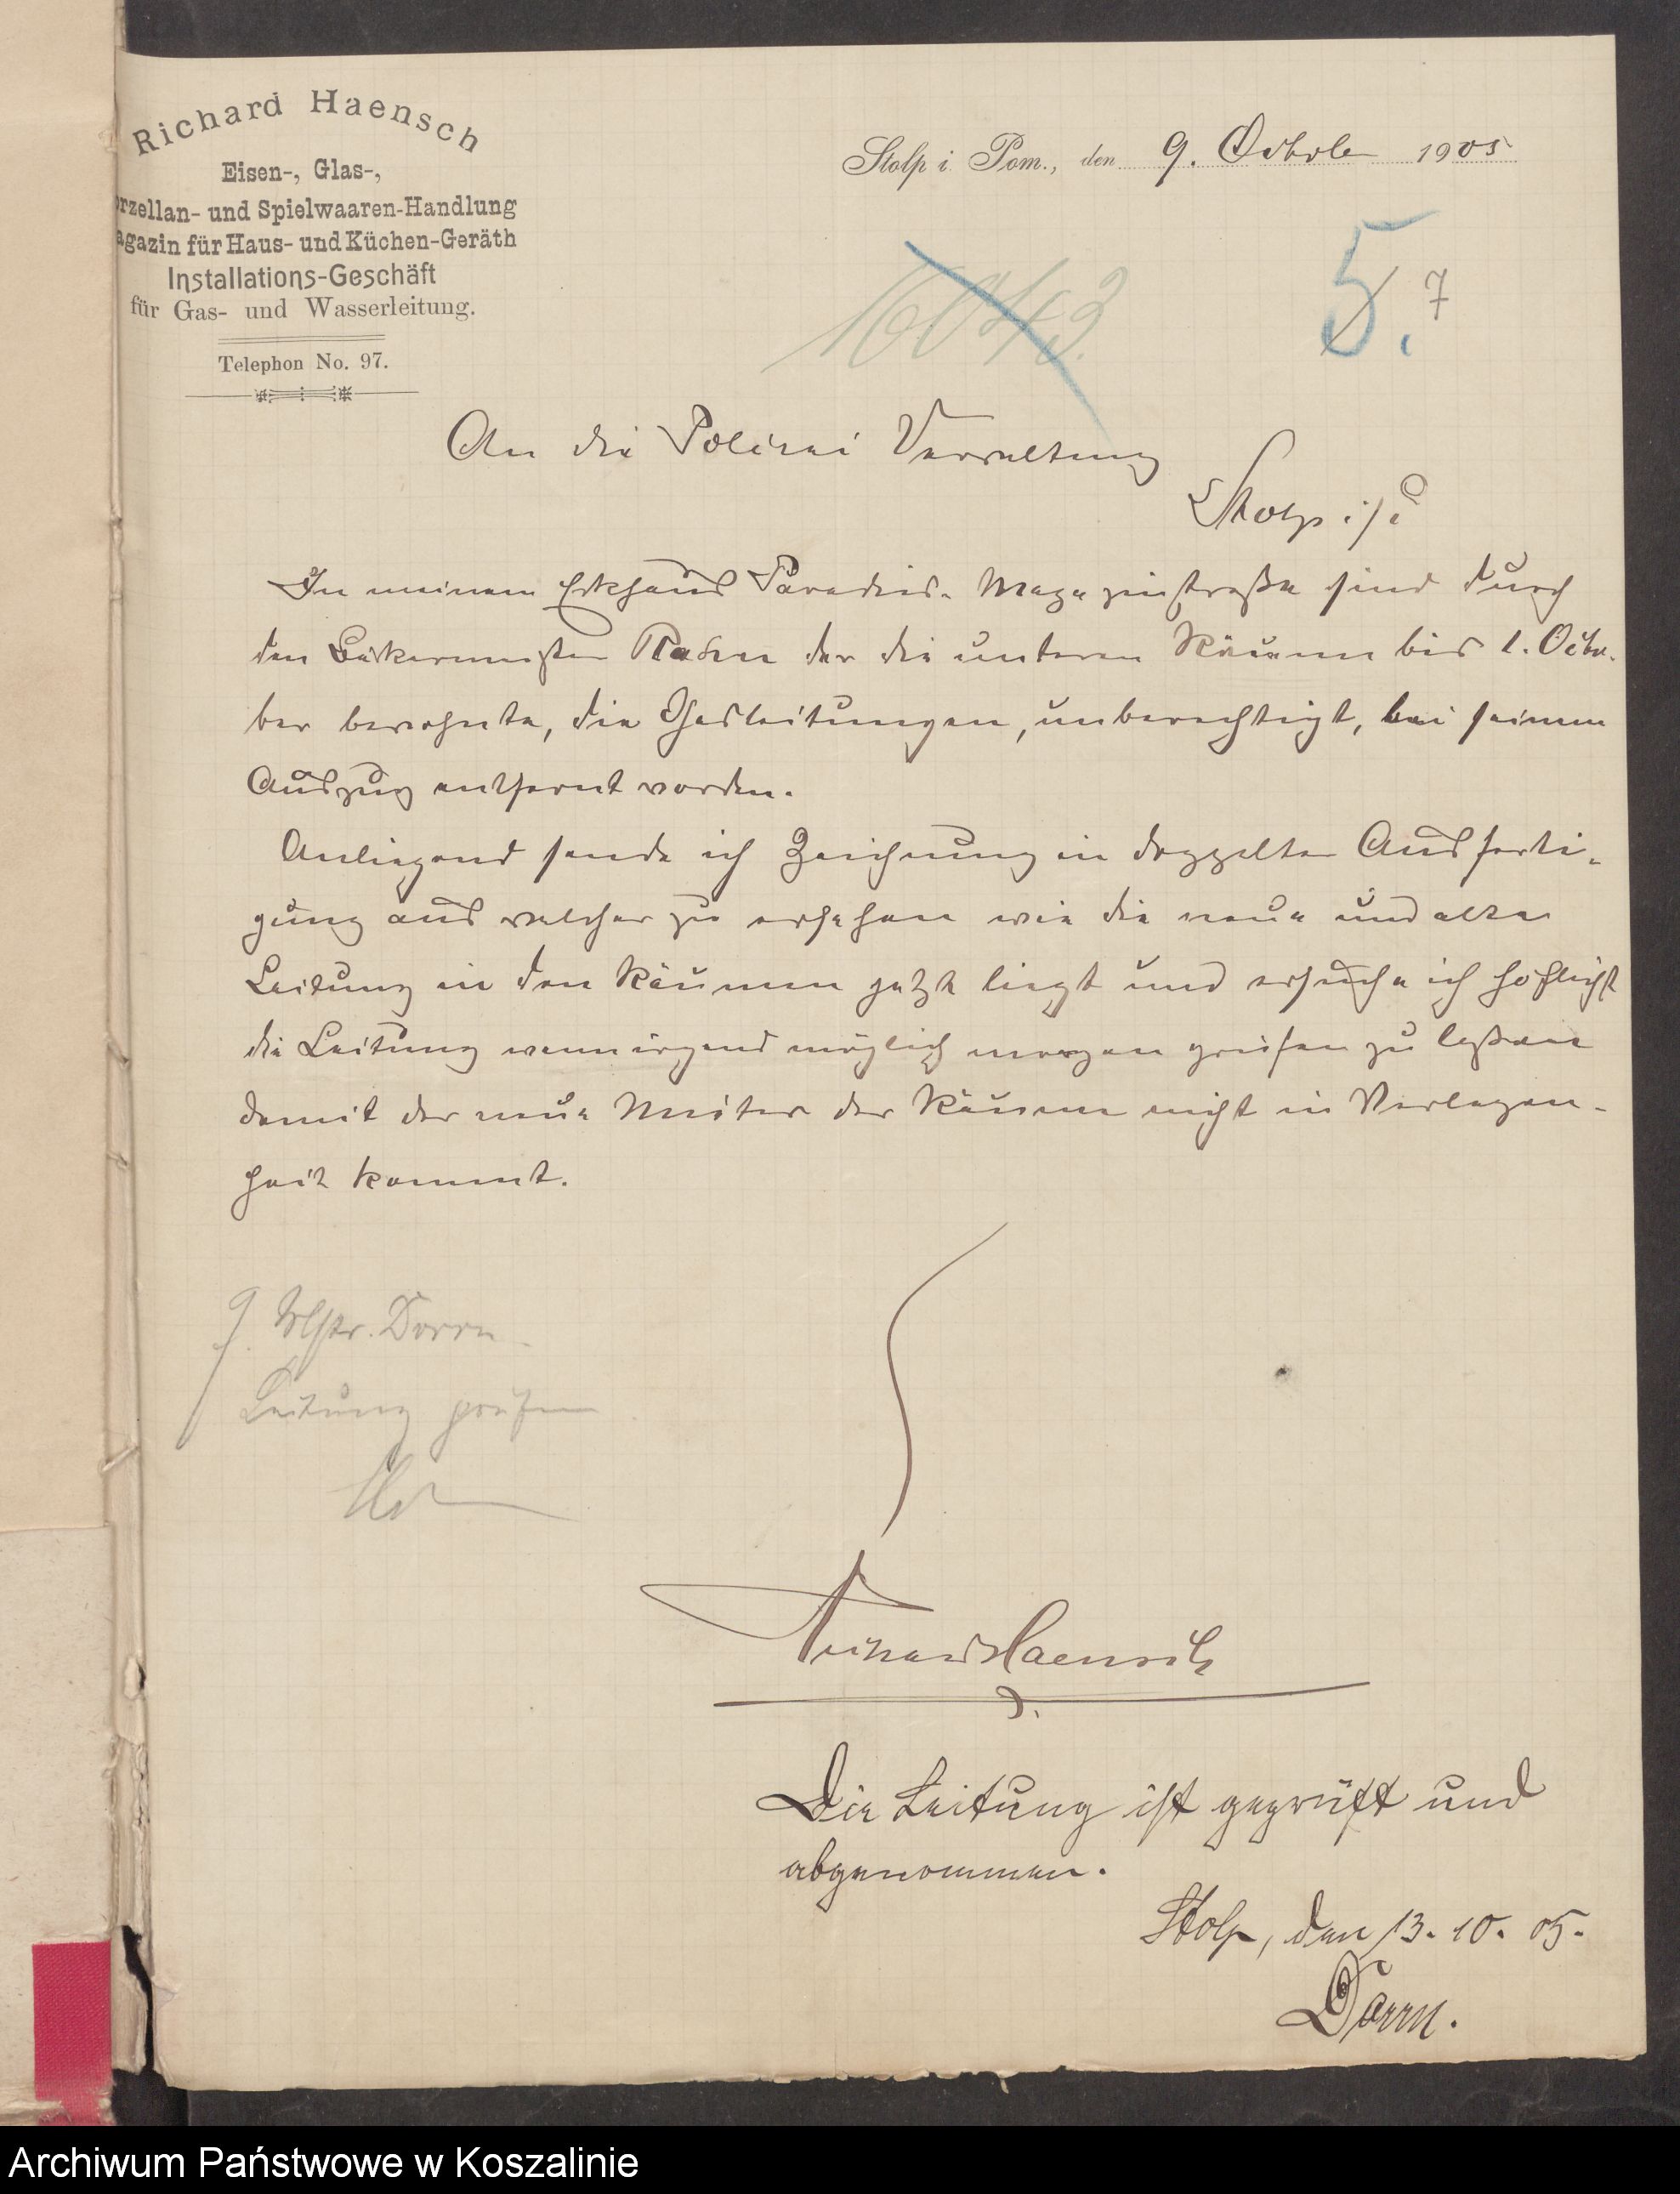 Richard Haensch
Eisen-, Glas-,
orzellan- und Spielwaaren-Handlung
agazin für Haus- und Küchen-Geräth
Installations-Geschäft
für Gas- und Wasserleitung.
Telephon No. 97.
Stolp i. Pom., den 9. October 1905
16043.
5. 7
An die Polizei Verwaltung
Stolp i/P
In meinem Eckhaus Paradies- Magazinstraße sind durch
den Bäckermeister der die unteren Räume bis 1. Octo-
ber bewohnte, die Gasleitungen, unberechtigt, bei seinem
Auszug entfernt worden.
Anliegend sende ich Zeichnung in doppelter Ausferti-
gung aus welcher zu ersehen wie die neue und alte
Leitung in den Räumen jetzt liegt und ersuche ich höflichst
die Leitung wenn irgend möglich morgen prüfen zu laßen
damit der neue Mieter der Räume nicht in Verlegen-
heit kommt.
Dorrn
Leitung prüfen
Richard Haensch
Die Leitung ist geprüft und
abgenommen.
Stolp, den 13. 10. 05.
Dorrn.
Archiwum Państwowe w Koszalinie